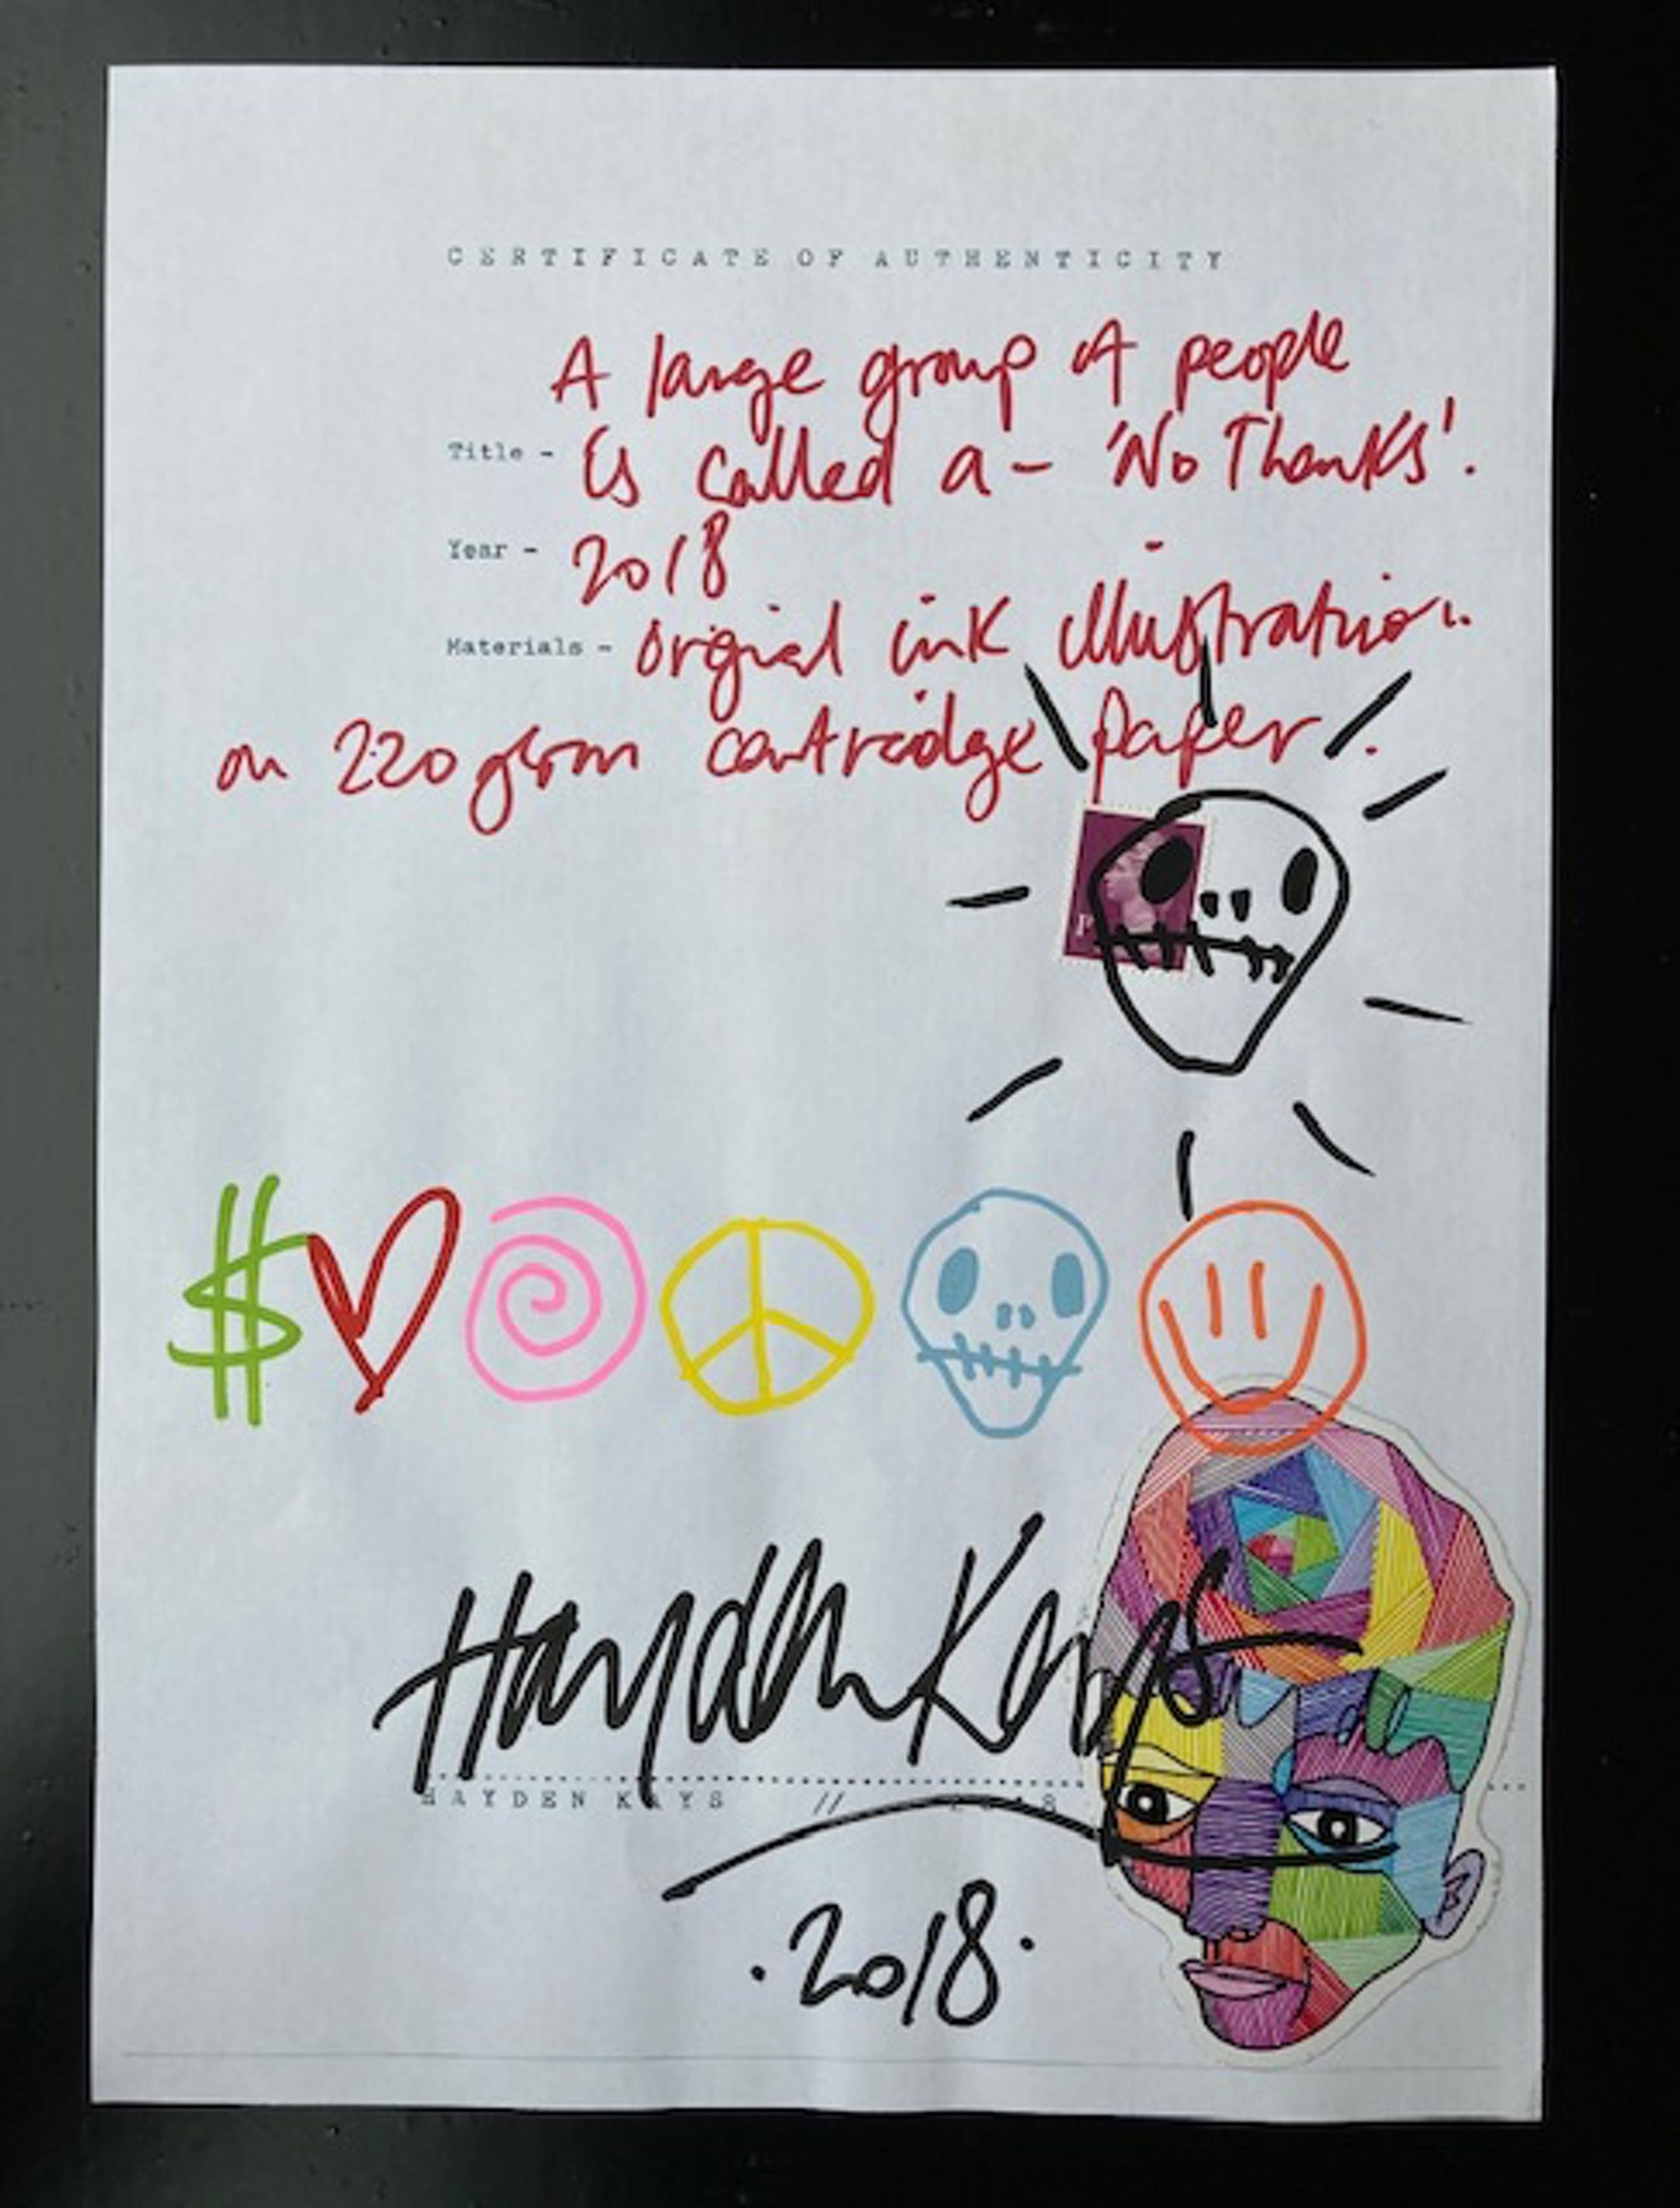 CERTIFICATE OF AUTHENTICITY
A large group of people
Title - Is called a - 'No Thanks'.
Year - 2018
Materials - Orginal ink illustration
on 220 gsm cartradge paper.
P
$
Hayden Kays
HAYDEN KAYS // 2018
.2018.